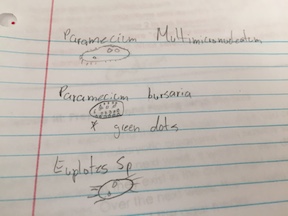 Paramecium Multimicronucleatum
Paramecium bursaria
* green dots
Euplotes Sp